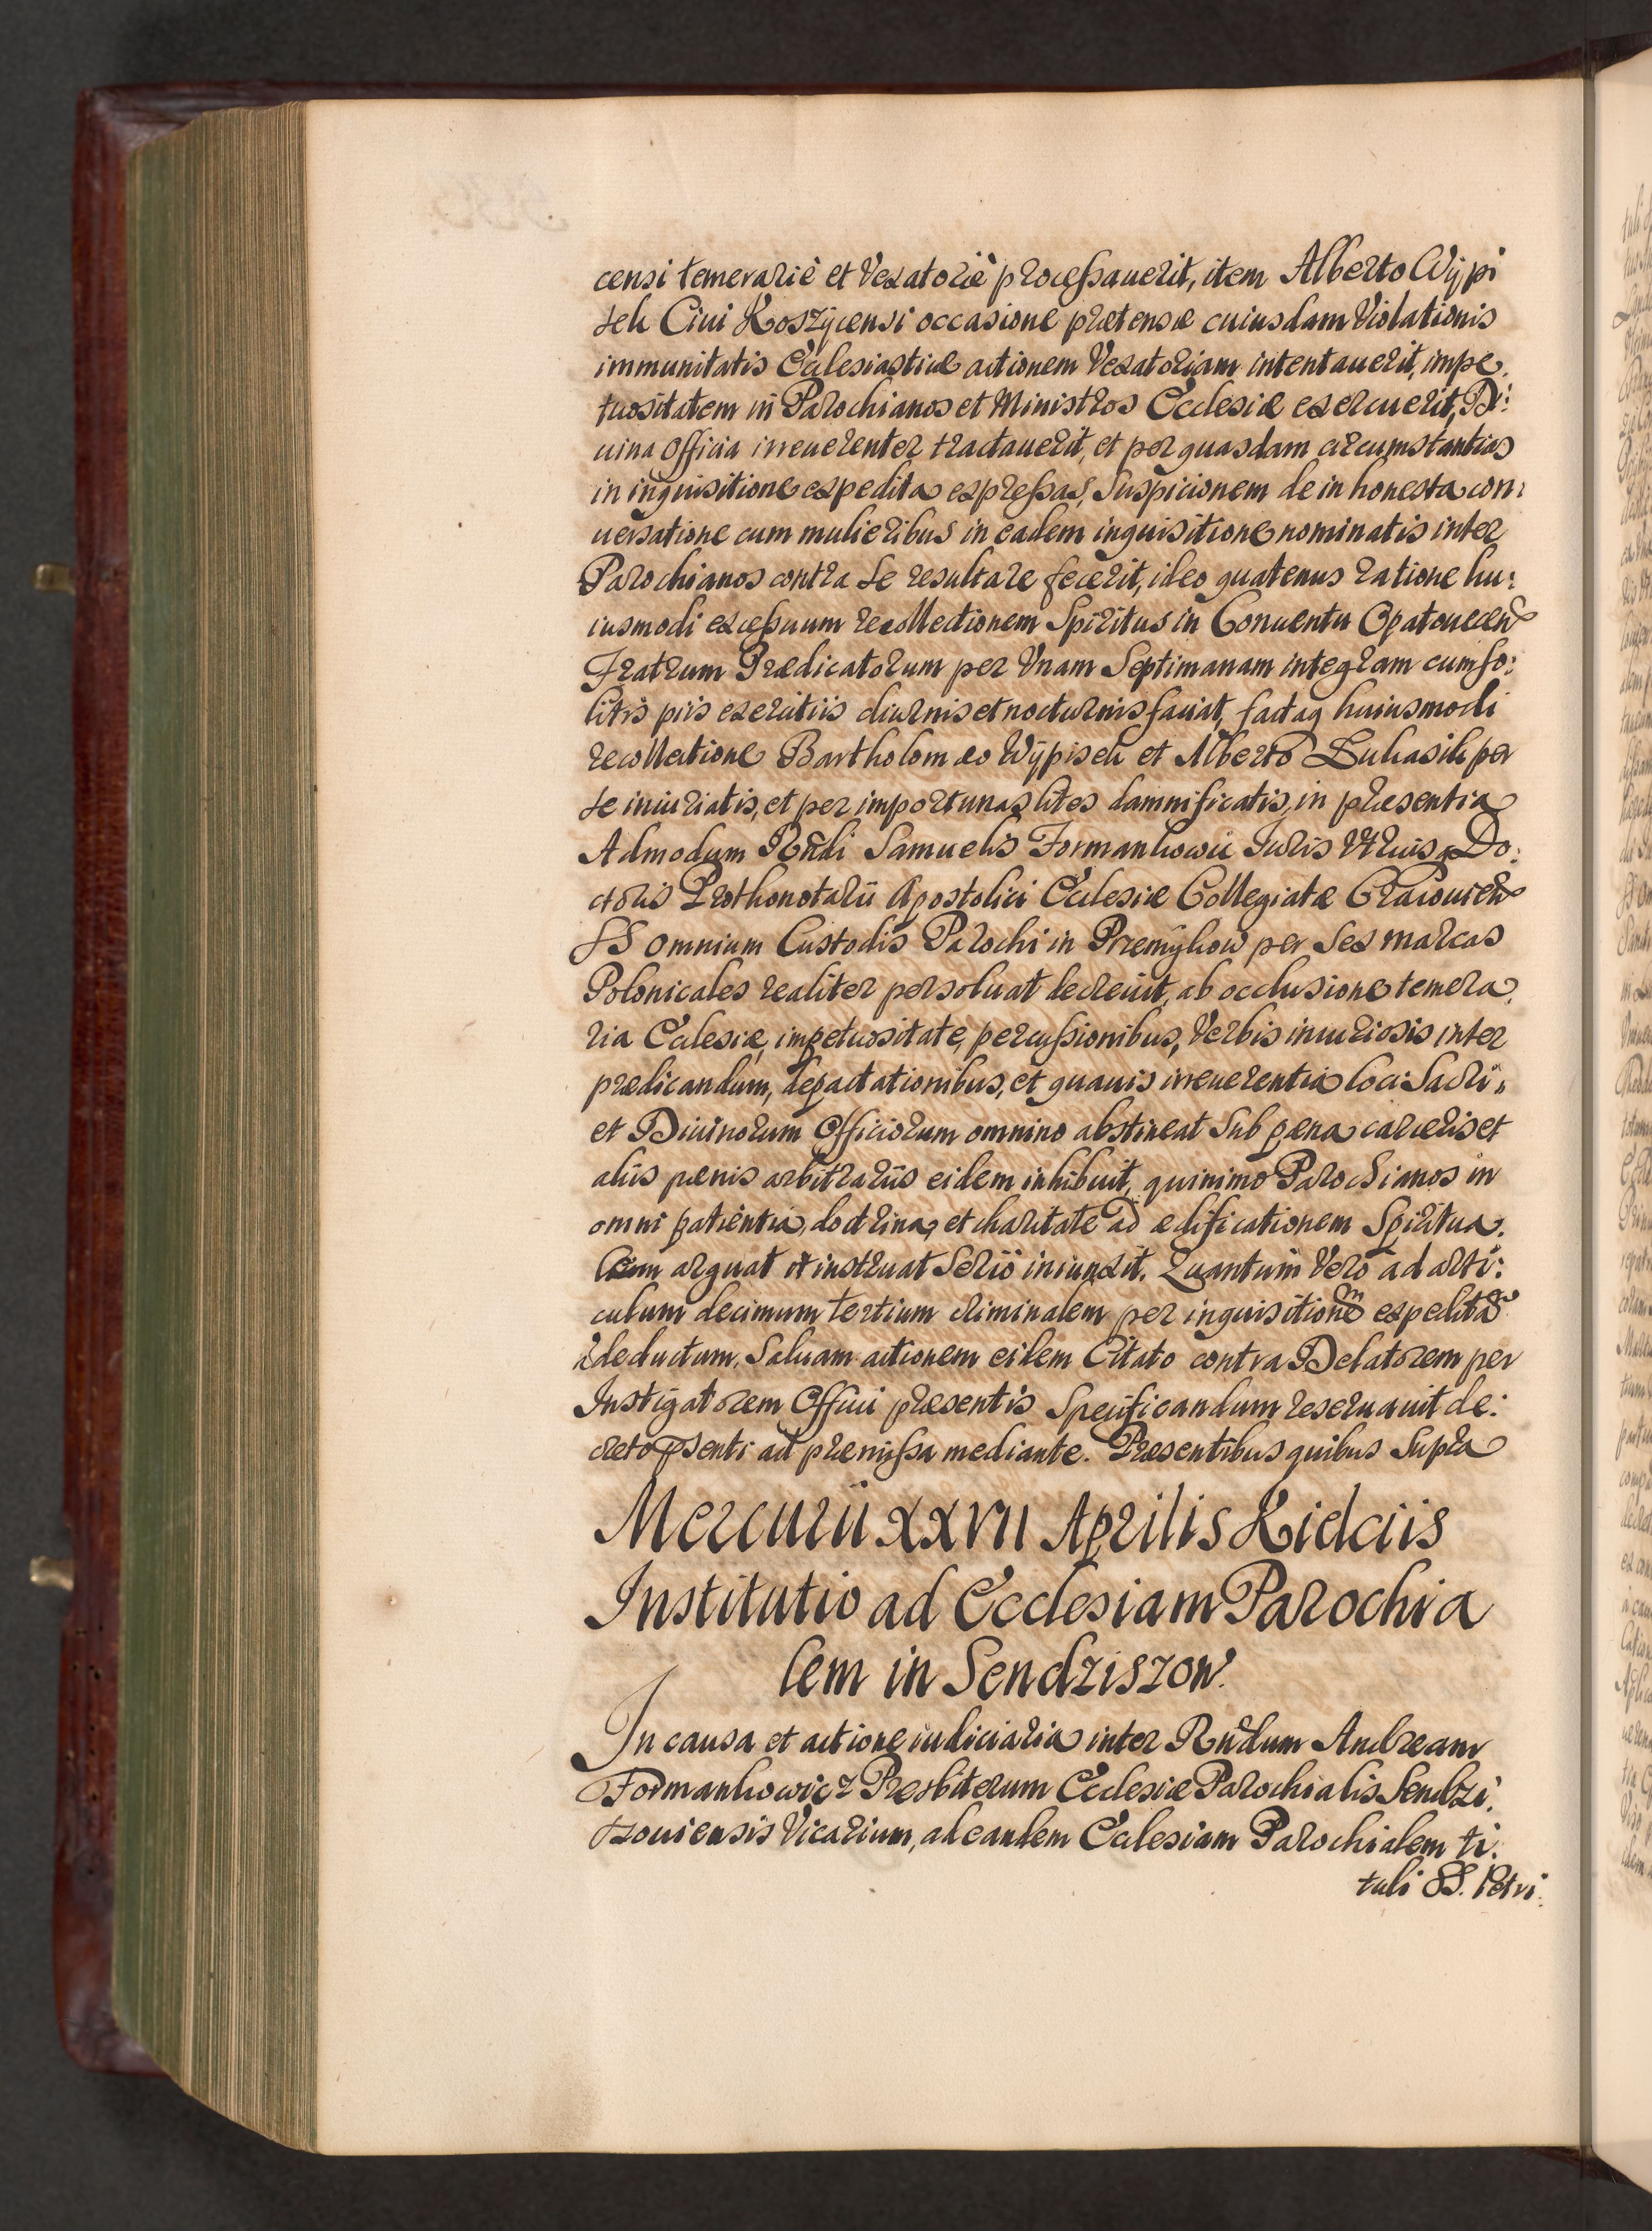 censi temerariè et Vexatoriè processauerit, item Alberto Wÿpi
sek Ciui Koszÿcensi occasione prætensæ cuiusdam Violationis
immunitatis Ecclesiasticæ actionem Vexatoriam intentauerit, impe.
tuositatem in Parochianos et Ministros Ecclesiæ exercuerit, Di:
uina Officia irreuerenter tractauerit, et per quasdam circumstantias
in inquisitione expedita expressas, Suspicionem de in honesta con:
uersatione cum mulieribus in eadem inquisitione nominatis inter
Parochianos contra se resultare fecerit, ideo quatenus ratione hu:
iusmodi excessuum recollectionem Spiritus in Conuentu Opatouecen
Fratrum Prædicatorum per Vnam Septimanam integram cum so:
litis piis exercitiis diurnis et nocturnis faciat, factaq huiusmodi
recollectione Bartholomæo Wÿpisek et Alberto Lukasik per
se iniuriatis, et per importunas lites damnificatis, in præsentia
Admodum Rndi Samuelis Formankowic Iuris Vtriusq Do:
ctoris Prothonotarii Apostolici Ecclesiæ Collegiatæ Cracouien
SS omnium Custodis Parochi in Przemÿkow per Sex marcas
Polonicales realiter persoluat decreuit, ab occlusione temera.
ria Ecclesiæ, impetuositate, percussionibus, Verbis iniuriosis inter
prædicandum, depactationibus, et quauis irreuerentia loci Sacri,
et Diuinorum Officiorum omnino abstineat Sub pæna carceris et
aliis pænis arbitrariis eidem inhibuit, quinimo Parochianos in
omni patientia, doctrina, et charitate ad ædificationem Spiritua.
lem arguat et instruat Seriò iniunxit. Quantum Verò ad arti:
culum decimum tertium criminalem per inquisitionem expeditam
deductum. Saluam actionem eidem Citato contra Delatorem per
Instigatorem Officii præsentis Specificandum reseruauit de:
creto psenti ad præmissa mediante. Præsentibus quibus Supra
Mercurii XXVII Aprilis Kielciis
Institutio ad Ecclesiam Parochia
lem in Sendziszow.
In causa et actione iudiciaria inter Rndum Andream
Formankowicz Presbiterum Ecclesiæ Parochialis Sendzi.
szouiensis Vicarium, ad eandem Ecclesiam Parochialem ti.
tuli SS. Petri.